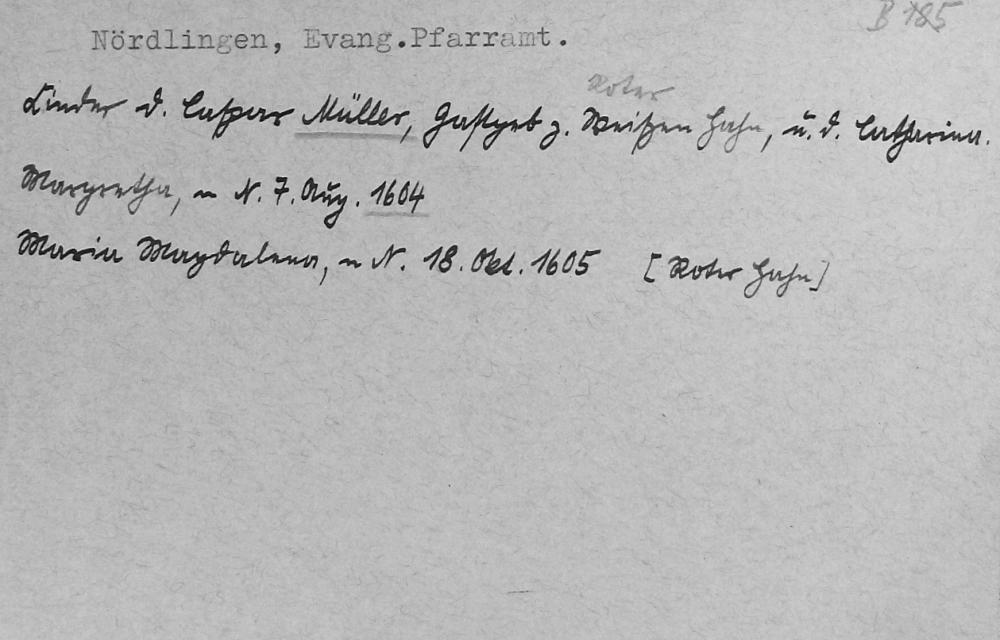 B 185
Nördlingen, Evang.Pfarramt.
Roter
Kinder d. Caspar Müller, Gastgeb z. Weißen Hahn, u. d. Catharina.
Margretha, ~ N. 7. Aug. 1604
Maria Magdalena, ~ N. 18. Okt. 1605 [Roter Hahn]